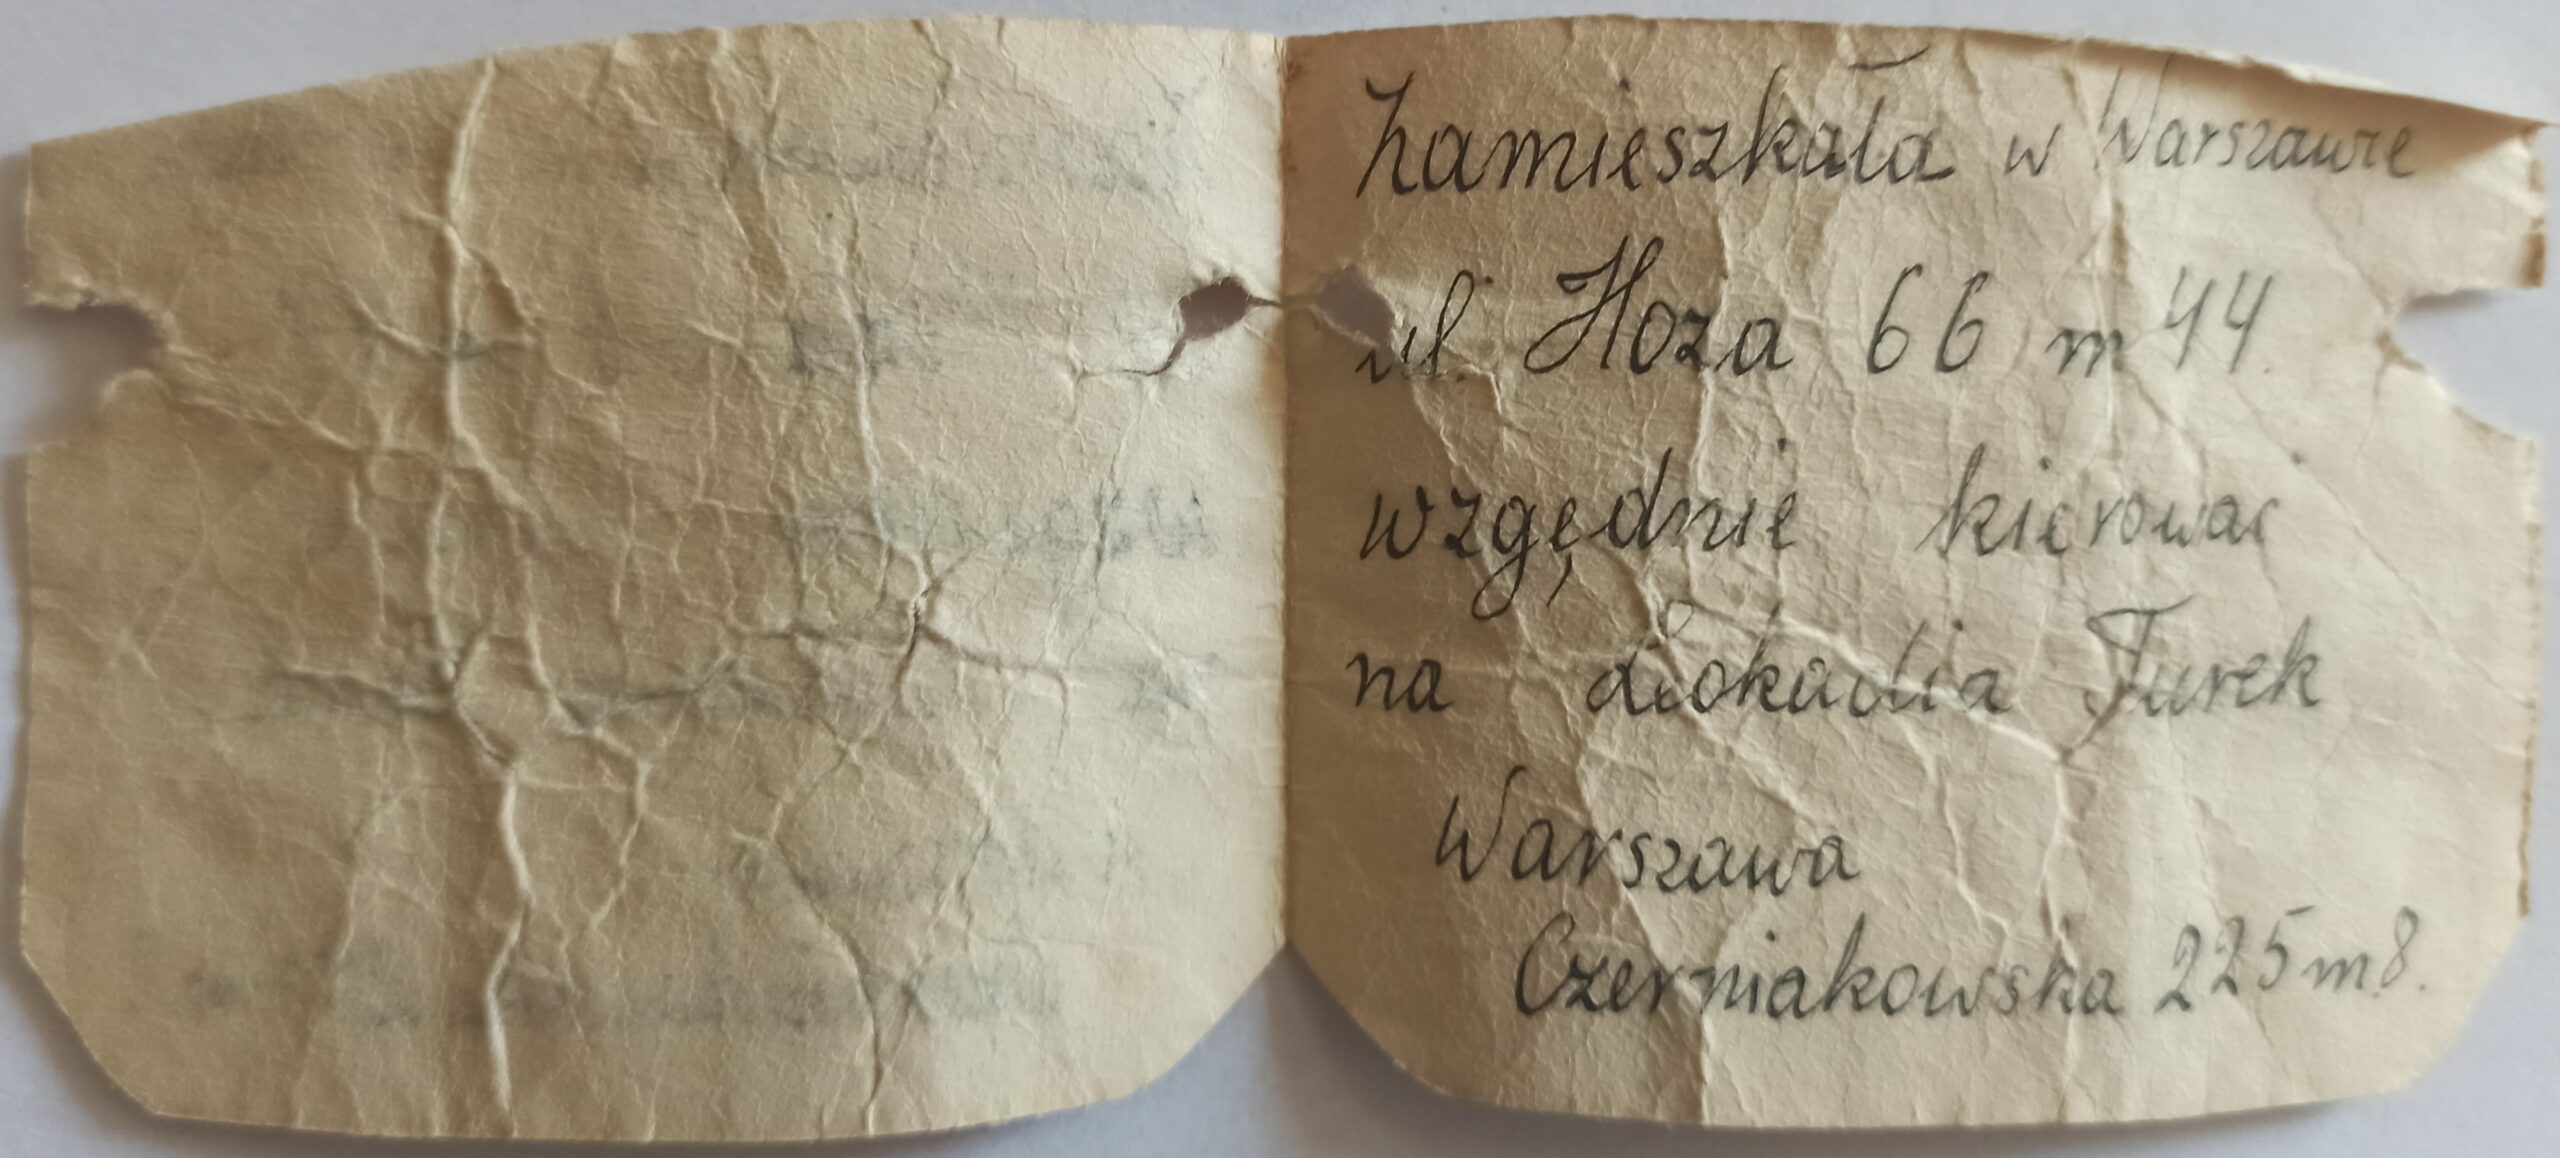 Zamieszkała w Warszawie
ul. Hoża 66 m 44.
wzgędnie kierować
na Leokadia Turek
Warszawa
Czerniakowska 225 m 8.